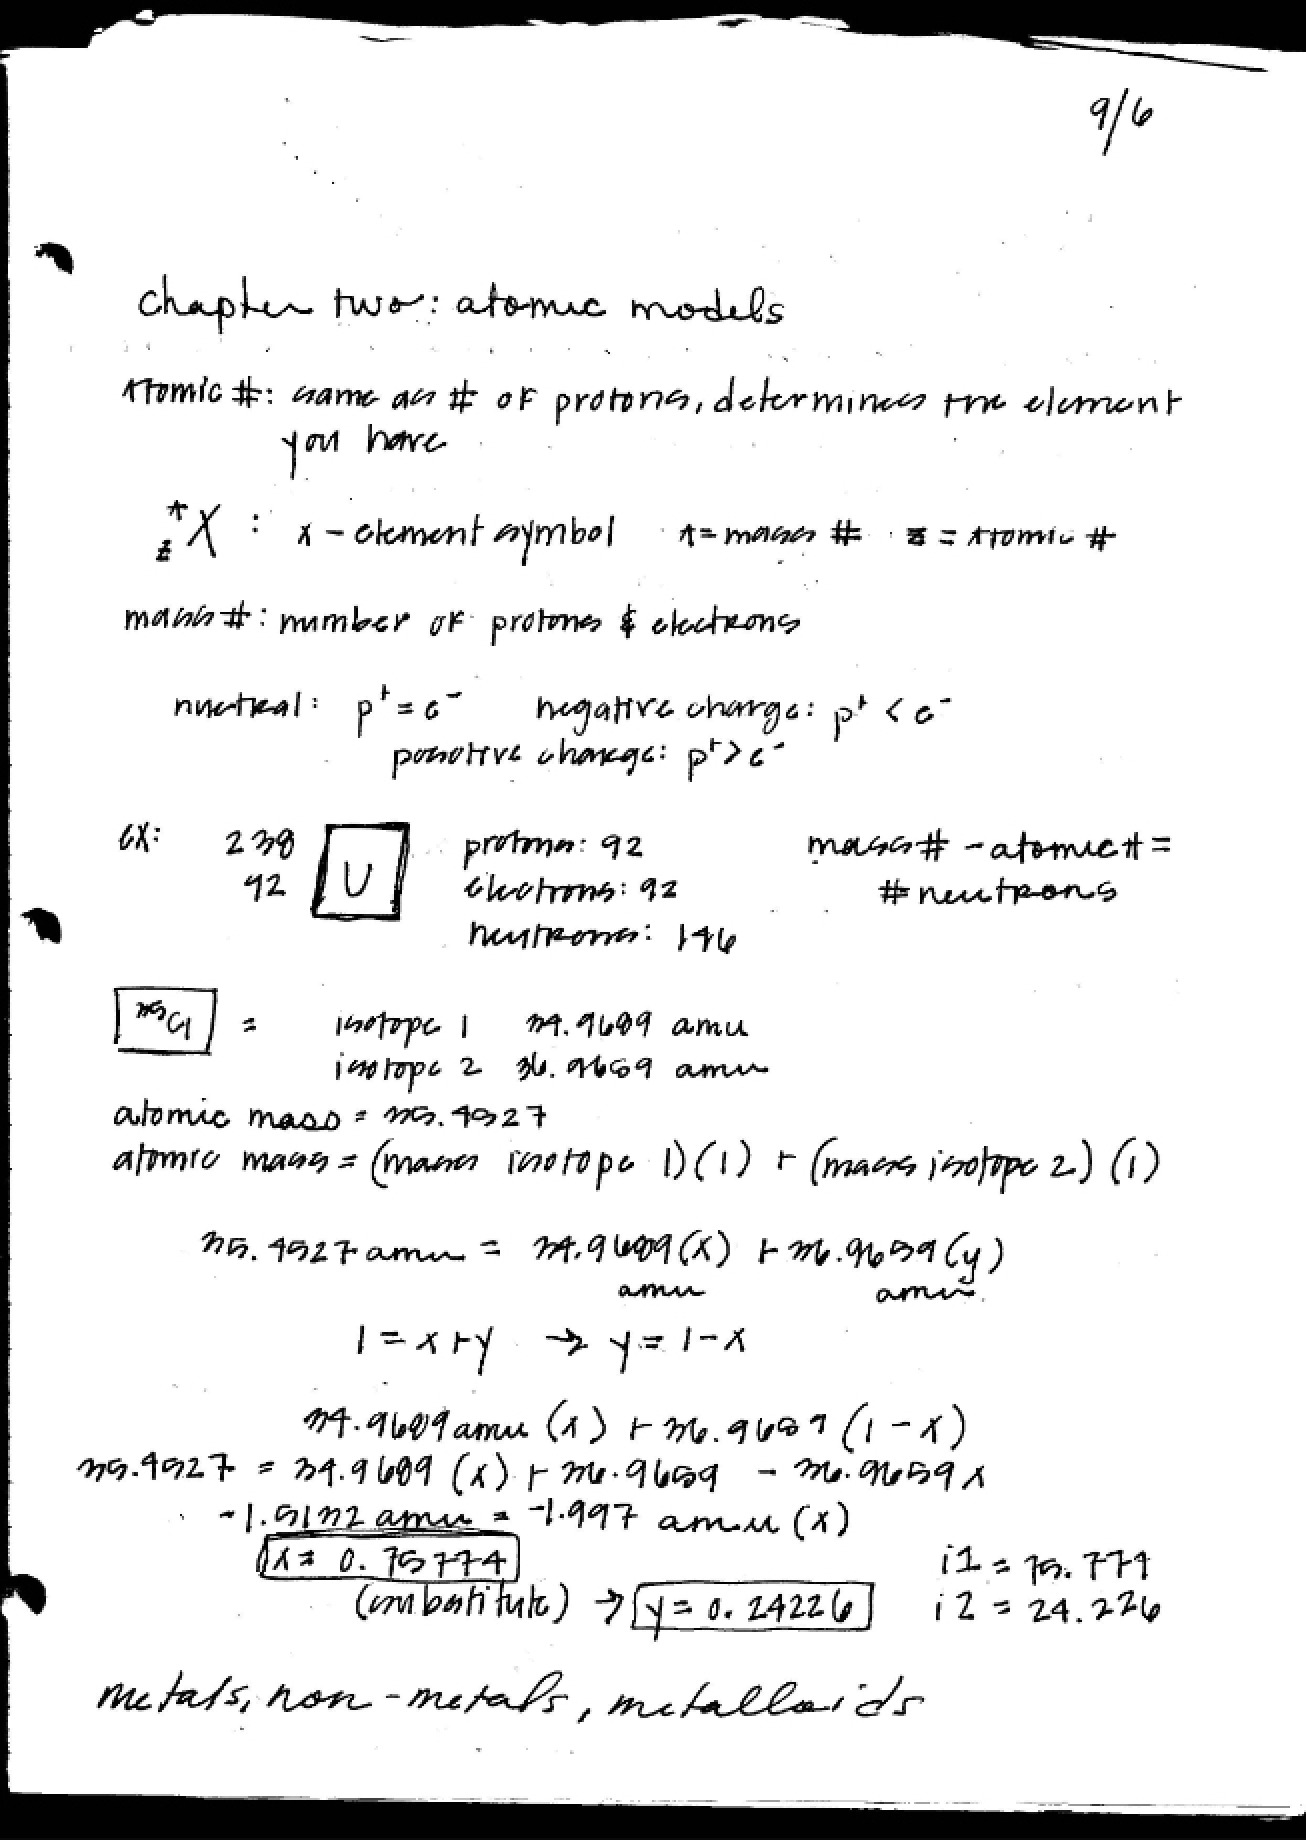 9/6
chapter two: atomic models
Atomic #: same as # of protons, determines the element
you have
A
Z X : x - element symbol A = mass # Z = Atomic #
mass #: number of protons & electrons
nuetral: p⁺ = e⁻ negative charge: p⁺ < e⁻
posotive charge: p⁺ > e⁻
ex: 238 U protons: 92 mass # - atomic # =
92 electrons: 92 # neutrons
neutrons: 146
³⁵Cl = isotope 1 34.9689 amu
isotope 2 36.9659 amu
atomic mass = 35.4527
atomic mass = (mass isotope 1)(1) + (mass isotope 2)(1)
35.4527 amu = 34.9689(x) + 36.9659(y)
amu amu
1 = x + y → y = 1 - x
34.9689 amu (x) + 36.9659 (1 - x)
35.4527 = 34.9689 (x) + 36.9659 - 36.9659x
-1.5132 amu = -1.997 amu (x)
x = 0.75774 i1 = 75.774
(substitute) → y = 0.24226 i2 = 24.226
metals, non-metals, metalloids